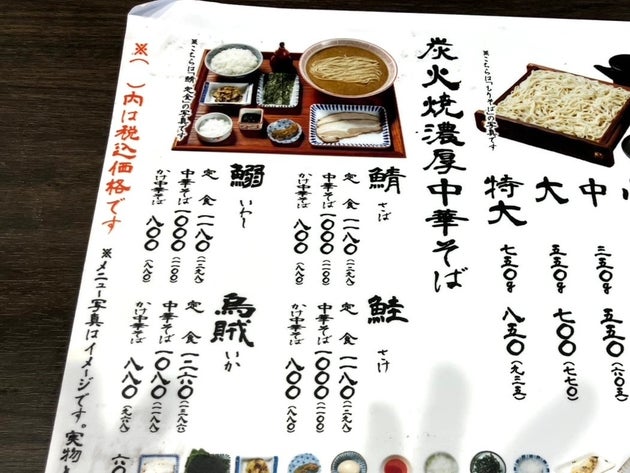 ※こちらは「もりそば」の写真です
中
三五〇g
五五〇
大
五五〇g
七〇〇(七七〇)
特大
七五〇g
八五〇(九三五)
炭火焼濃厚中華そば
鯖 さば
定食 一一八〇(一二九八)
中華そば 一〇〇〇(一一〇〇)
かけ中華そば 八〇〇(八八〇)
鮭 さけ
定食 一一八〇(一二九八)
中華そば 一〇〇〇(一一〇〇)
かけ中華そば 八〇〇(八八〇)
※こちらは「鯖定食」の写真です
鰯 いわし
定食 一一八〇(一二九八)
中華そば 一〇〇〇(一一〇〇)
かけ中華そば 八〇〇(八八〇)
烏賊 いか
定食 一二六〇(一三八六)
中華そば 一〇八〇(一一八八)
かけ中華そば 八八〇(九六八)
※( )内は税込価格です
※メニュー写真はイメージです。実物と